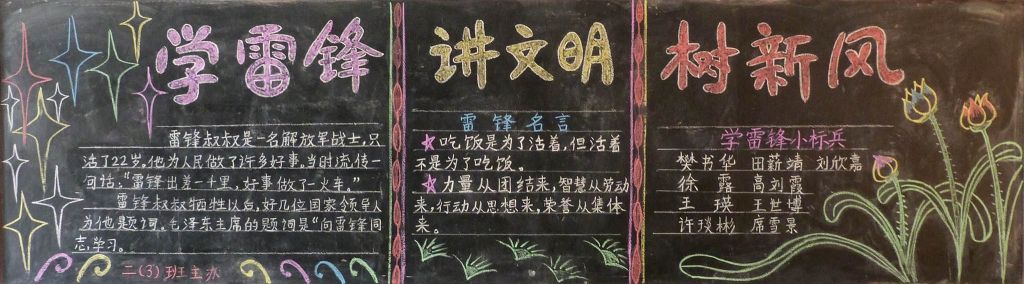 学雷锋
雷锋叔叔是一名解放军战士,只
活了22岁。他为人民做了许多好事,当时流传一
句话:“雷锋出差一千里,好事做了一火车。”
雷锋叔叔牺牲以后,好几位国家领导人
为他题词。毛泽东主席的题词是“向雷锋同
志学习”。
二(3)班主办
讲文明
雷锋名言
★吃饭是为了活着,但活着
不是为了吃饭。
★力量从团结来,智慧从劳动
来,行动从思想来,荣誉从集体
来。
树新风
学雷锋小标兵
樊书华 田薪靖 刘欣嘉
徐露 高刘霞
王瑛 王世博
许琰彬 席雪景